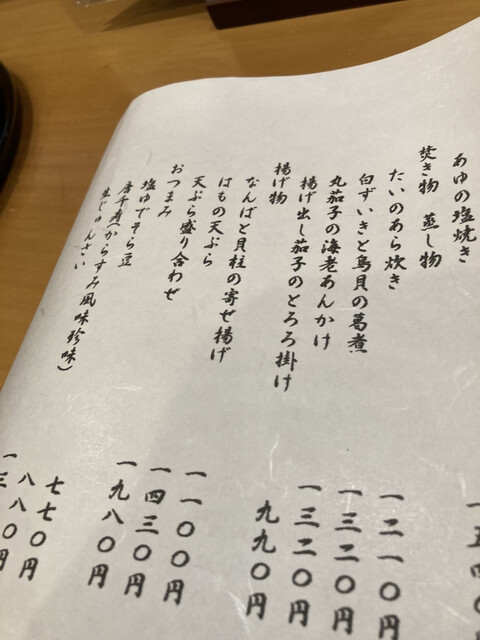 あゆの塩焼き
焚き物 蒸し物
たいのあら炊き 一二一〇円
白ずいきと鳥貝の葛煮 一三二〇円
丸茄子の海老あんかけ 一三二〇円
揚げ出し茄子のとろろ掛け 九九〇円
揚げ物
なんばと貝柱の寄せ揚げ 一一〇〇円
はもの天ぷら 一四三〇円
天ぷら盛り合わせ 一九八〇円
おつまみ
塩ゆでそら豆 七七〇円
唐千寿(からすみ風味珍味) 八八〇円
生じゅんさい